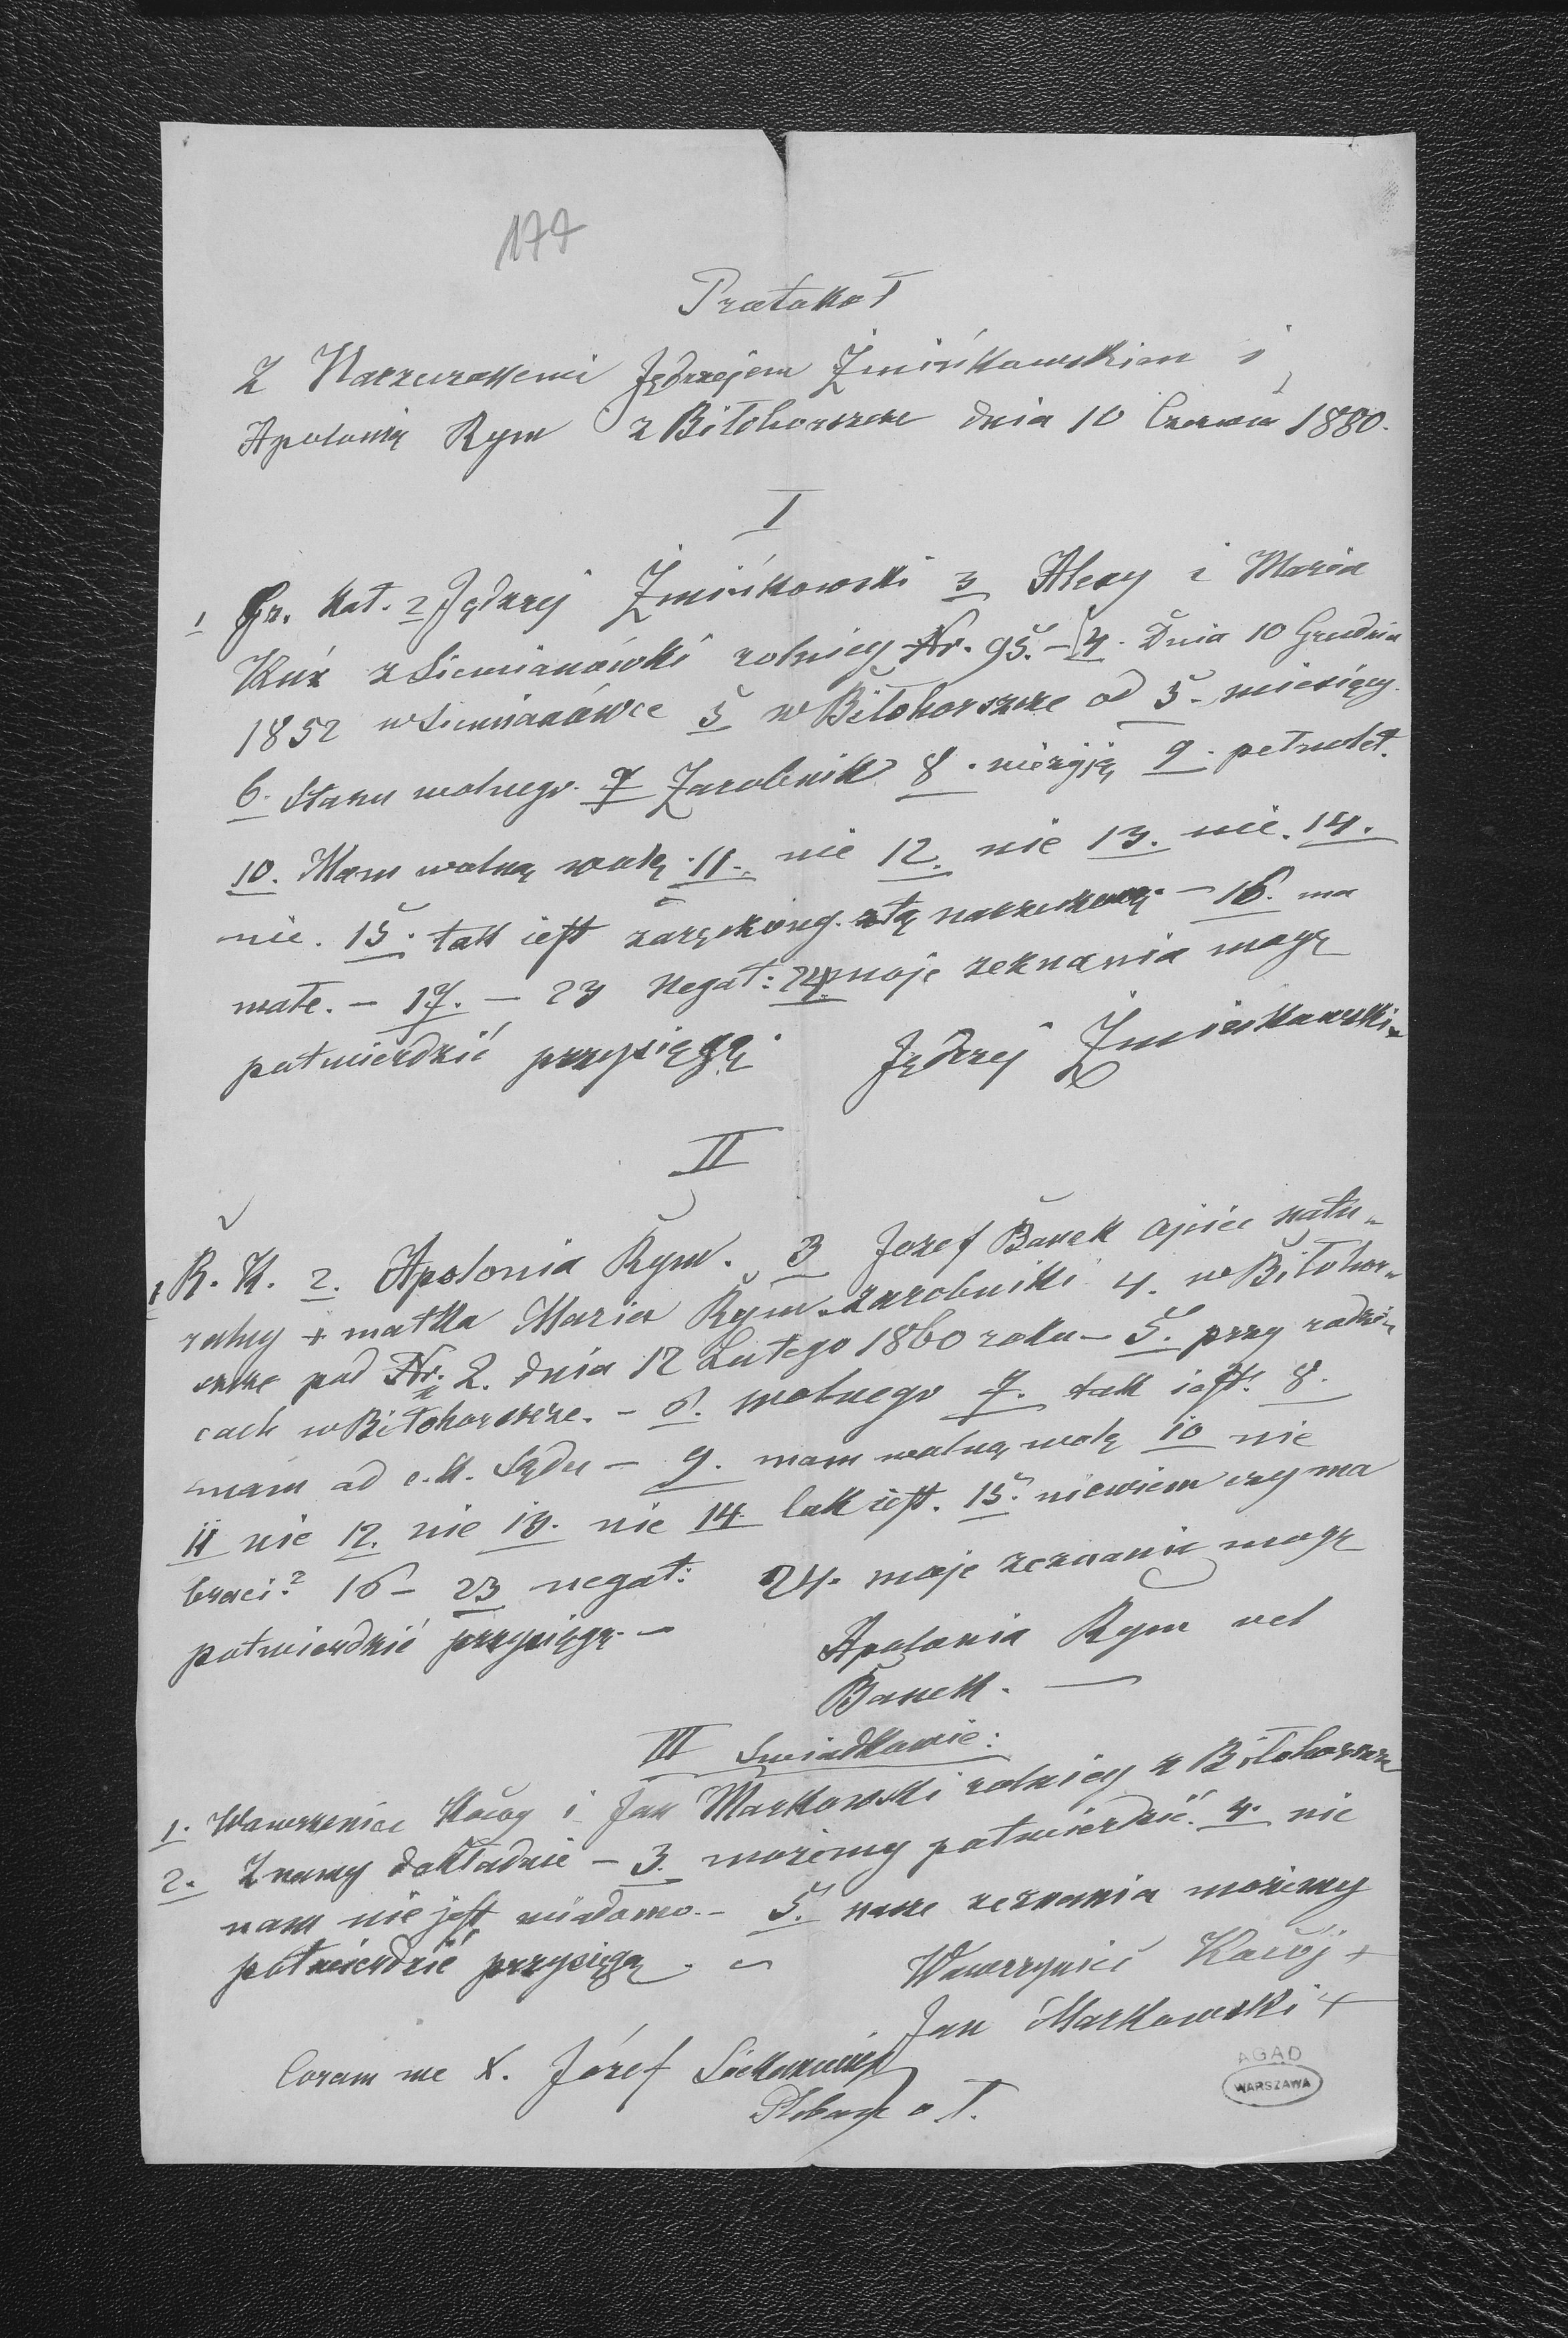 177
Protokoł
Z Narzeczonemi Jędrzejem Żmińkowskim i
Apolonią Rym z Biłohorszcze dnia 10 Czerwca 1880.
I
1 Gr. Kat. 2 Jędrzej Żmińkowski 3 Alexy i Maria
Kuź z Siemianówki rolnicy Nr. 95. – 4. Dnia 10 Grudnia
1852 w Siemianówce 5 w Biłohorszcze od 5. miesięcy.
6. Stanu wolnego. 7 Zarobnik 8. nieżyją 9. pełnolet.
10. Mam wolną wolę. 11. nie 12. nie 13. nie. 14.
nie. 15. tak jest zaręczony z tą narzeczoną. – 16. ma
małe. – 17. – 23 negat: 24. moje zeznania mogę
potwierdzić przysięgą. Jędrzej Żmińkowski +
II
1 R. K. 2. Apolonia Rym. 3 Jozef Banek ojciec natu-
ralny + matka Maria Rym zarobniki 4. w Biłohor-
szcze pod Nr. 2. dnia 12 Lutego 1860 roku – 5. przy rodzi-
cach w Biłohorszcze. – 6. wolnego 7. tak jest. 8.
mam od c. k. Sądu – 9. mam wolną wolę 10 nie
11 nie 12. nie 13. nie 14 tak jest. 15. niewiem czy ma
braci? 16 – 23 negat: 24. moje zeznania mogę
potwierdzić przysięgą. –
Apolonia Rym vel
Banek. –
III Swiadkowie:
1. Wawrzeniec i Jan Markowski rolnicy z Biłohorszcze
2. Znamy dokładnie – 3. możemy potwierdzić. 4. nic
nam nie jest wiadomo. – 5. nasze zeznania możemy
potwierdzić przysięgą. –
Wawrzyniec +
Jan Markowski +
Coram me X. Józef
Pleban o. ł.
AGAD
WARSZAWA